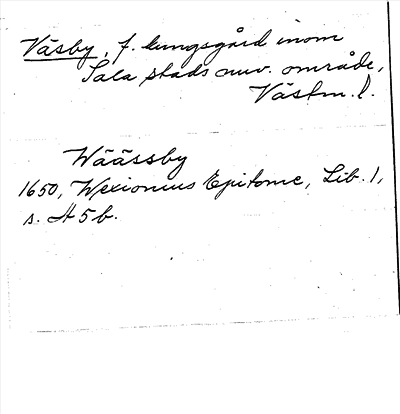 Väsby, f. kungsgård inom
Sala stads nuv. område,
Västm. l.
Wäässby
1650, Wexionius Epitome, Lib. 1,
s. H 5 b.